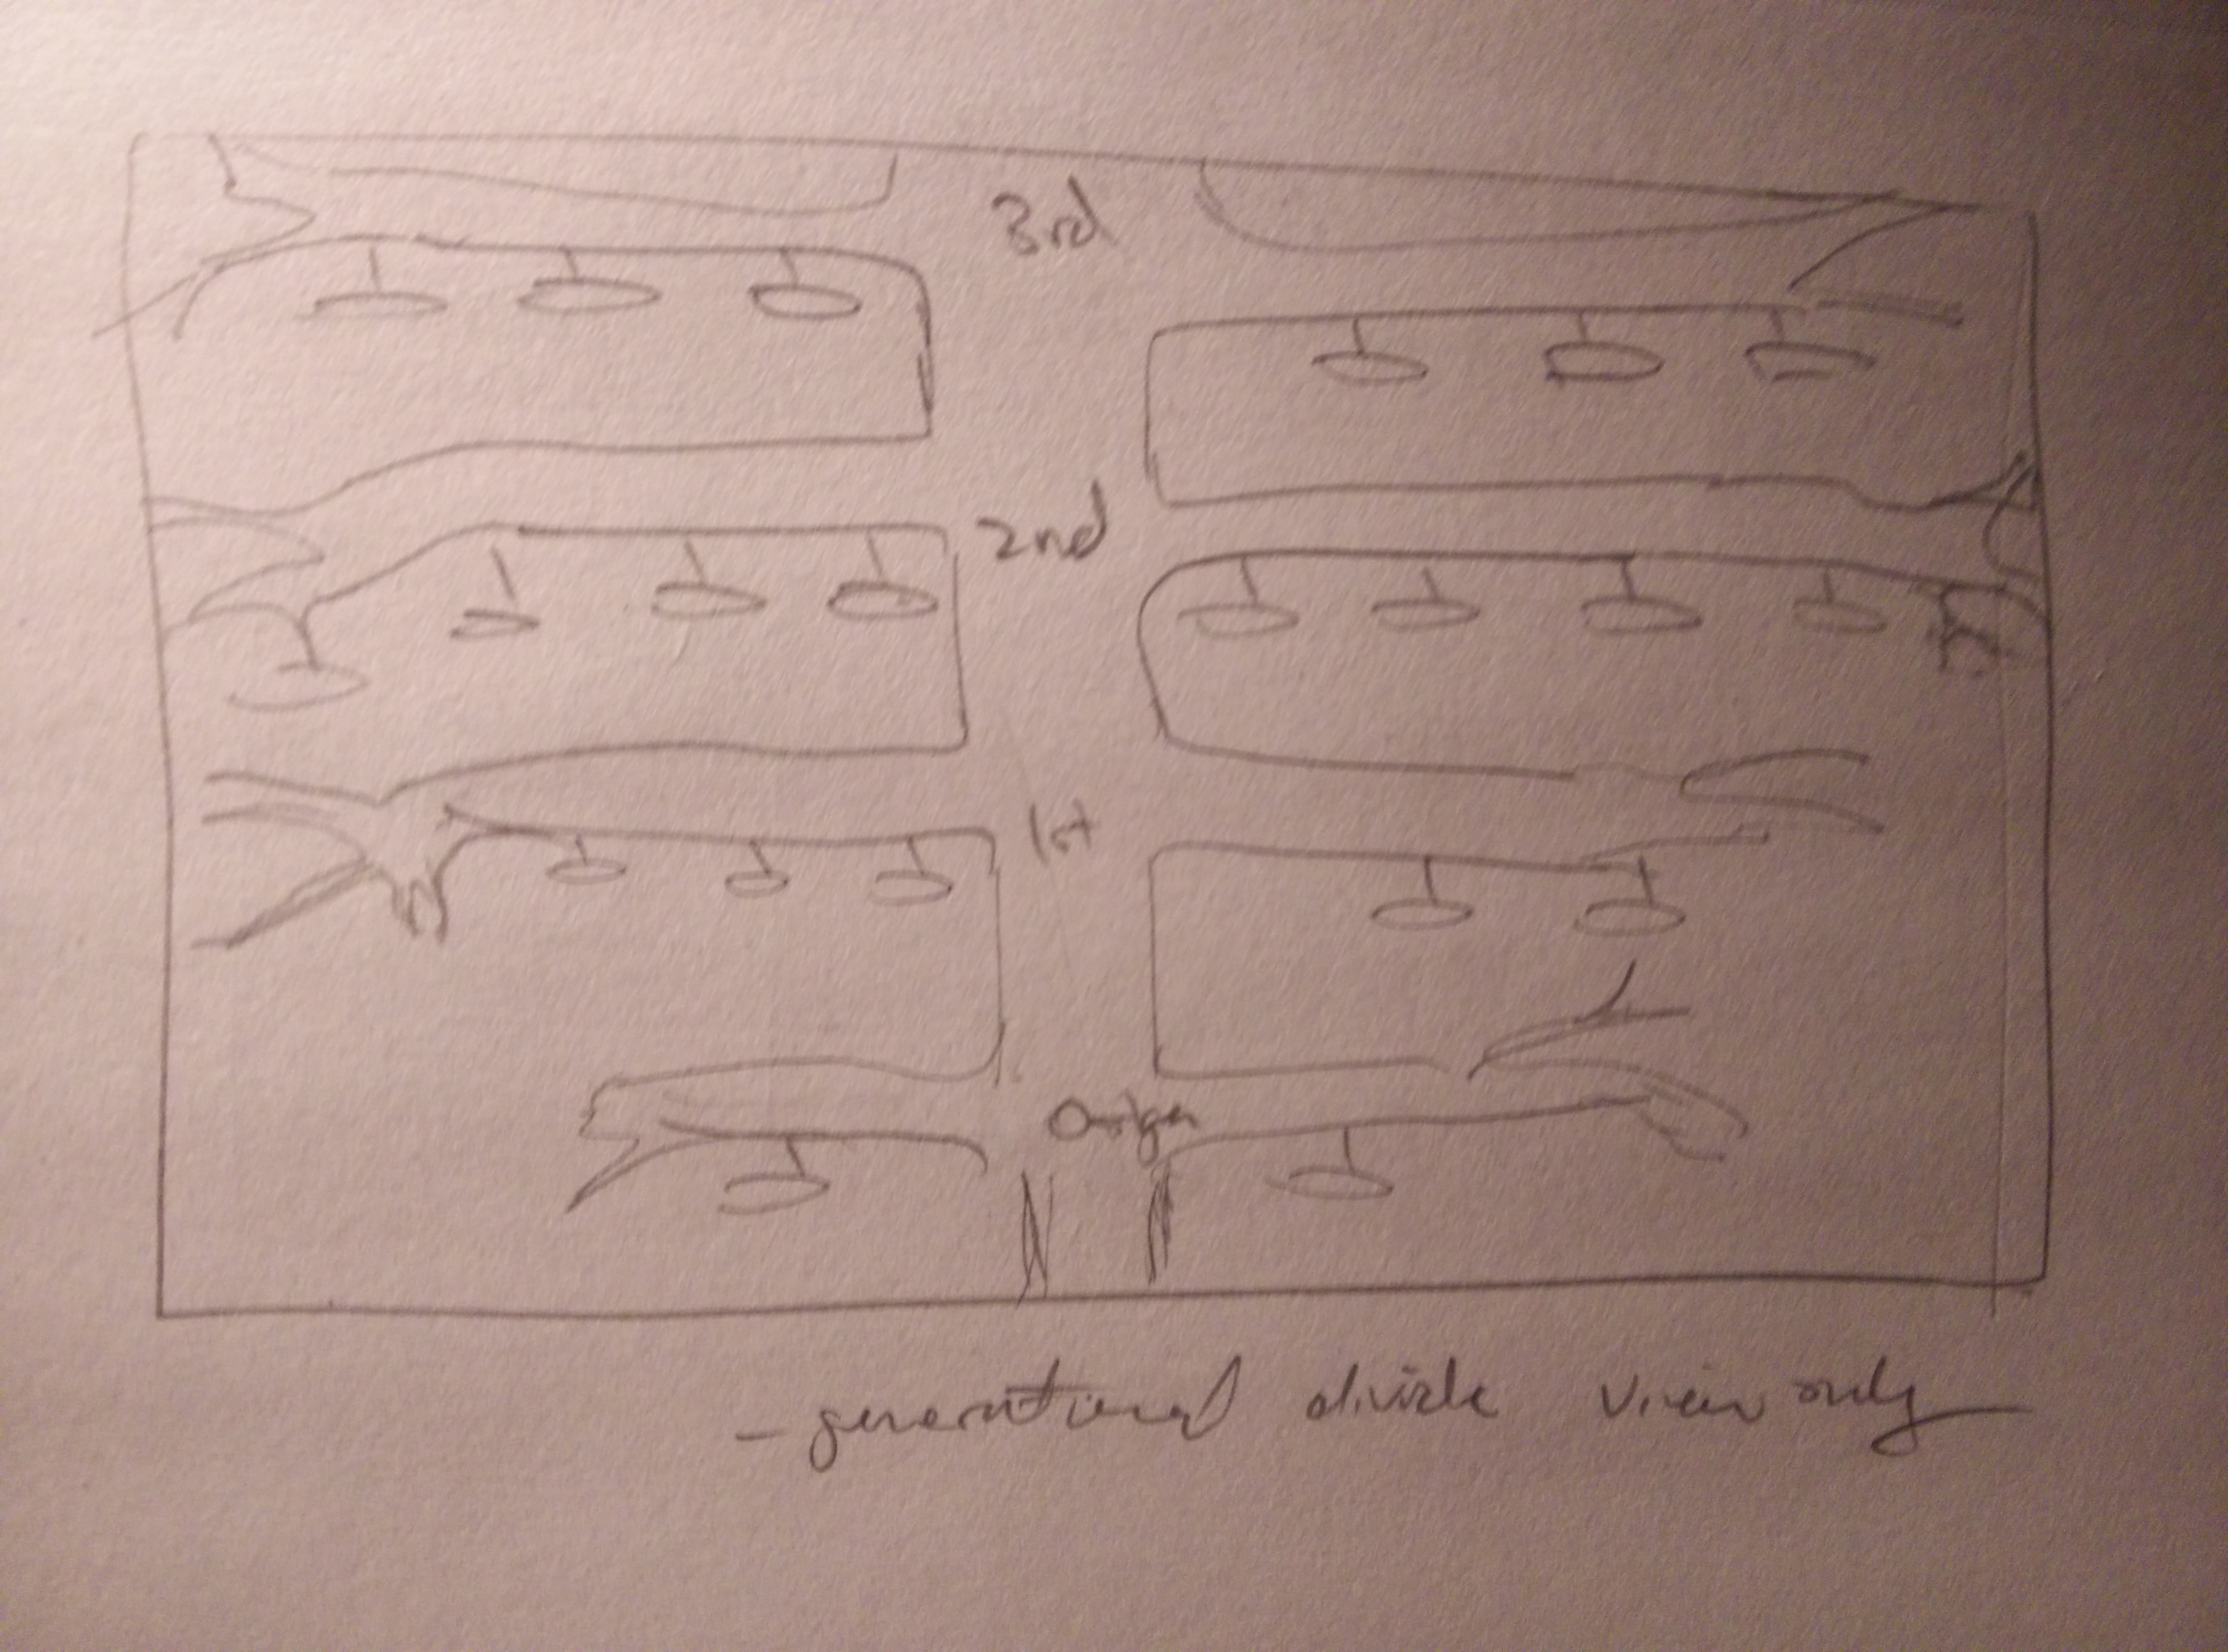 3rd
2nd
1st
Origin
- generational divide view only